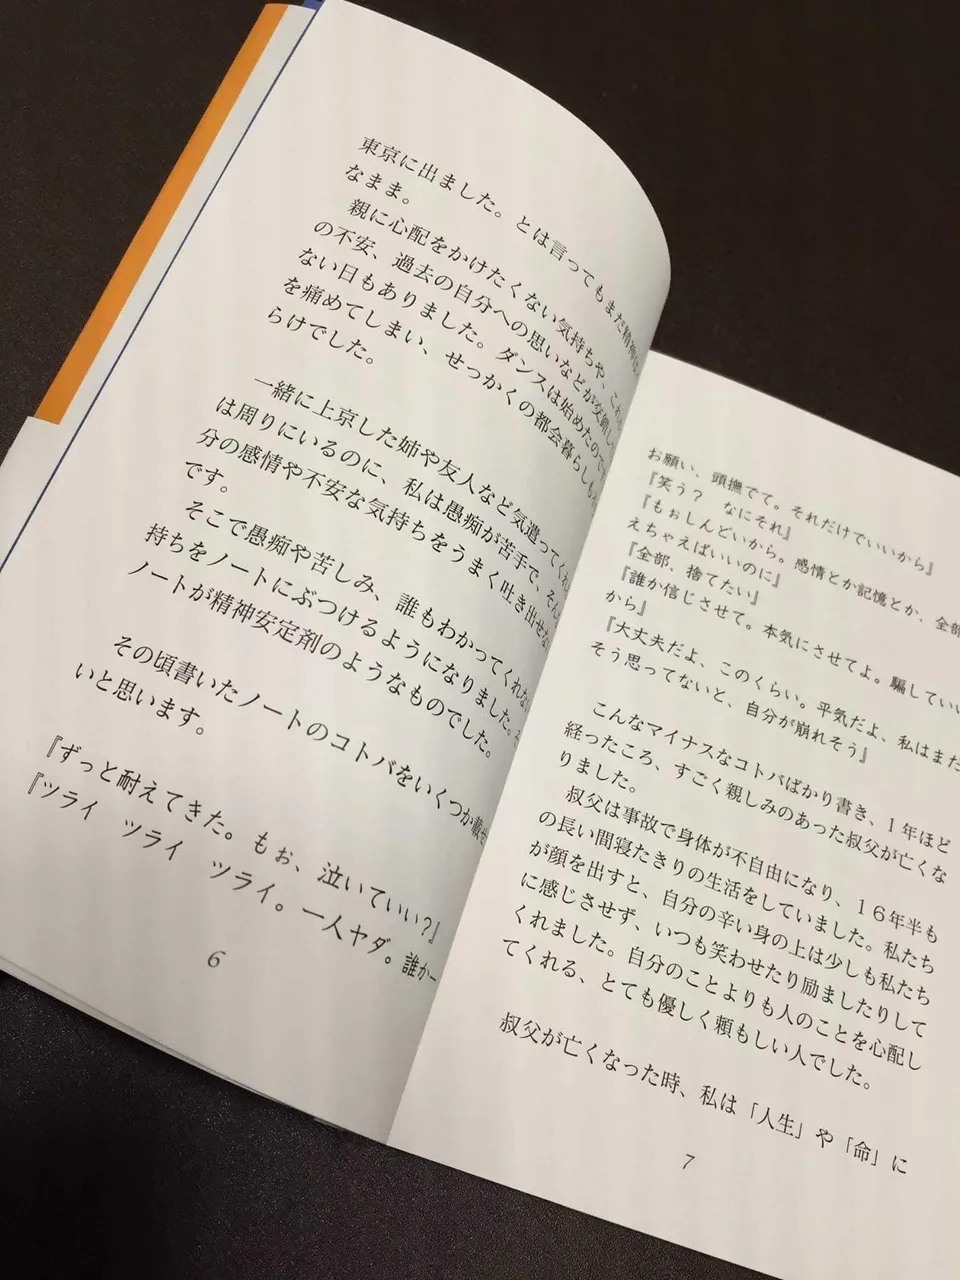 東京に出ました。とは言ってもまだ精神は
なまま。
親に心配をかけたくない気持ちや、これ
の不安、過去の自分への思いなどが交錯し
ない日もありました。ダンスは始めたので
を痛めてしまい、せっかくの都会暮らしも
らけでした。
一緒に上京した姉や友人など気遣ってくれ
は周りにいるのに、私は愚痴が苦手で、そん
分の感情や不安な気持ちをうまく吐き出せな
です。
そこで愚痴や苦しみ、誰もわかってくれない
持ちをノートにぶつけるようになりました。
ノートが精神安定剤のようなものでした。
その頃書いたノートのコトバをいくつか載せ
いと思います。
『ずっと耐えてきた。もぉ、泣いていい?』
『ツライ ツライ ツライ。一人ヤダ。誰か―
6
お願い、頭撫でて。それだけでいいから』
『笑う? なにそれ』
『もぉしんどいから。感情とか記憶とか、全部
えちゃえばいいのに』
『全部、捨てたい』
『誰か信じさせて。本気にさせてよ。騙していい
から』
『大丈夫だよ、このくらい。平気だよ、私はまだ
そう思ってないと、自分が崩れそう』
こんなマイナスなコトバばかり書き、1年ほど
経ったころ、すごく親しみのあった叔父が亡くな
りました。
叔父は事故で身体が不自由になり、16年半も
の長い間寝たきりの生活をしていました。私たち
が顔を出すと、自分の辛い身の上は少しも私たち
に感じさせず、いつも笑わせたり励ましたりして
くれました。自分のことよりも人のことを心配し
てくれる、とても優しく頼もしい人でした。
叔父が亡くなった時、私は「人生」や「命」に
7